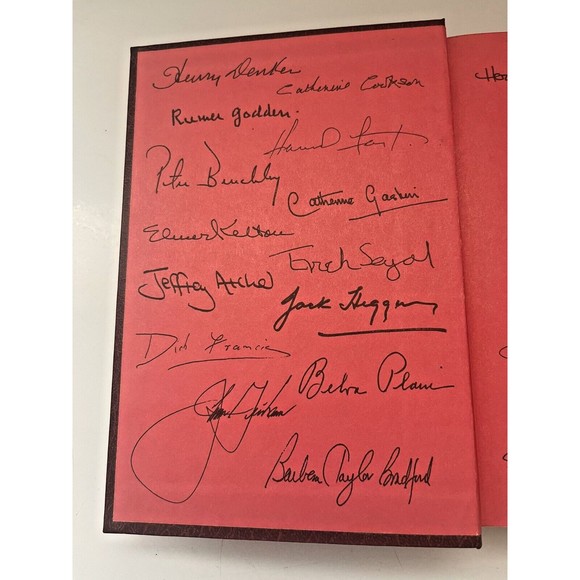 Henry Denker
Catherine Cookson
Rumer Godden.
Howard Fast.
Peter Benchley
Catherine Gaskin
Elmer Kelton
Erich Segal
Jeffrey Archer
Jack Higgins
Dick Francis
Belva Plain
John Jakes
Barbara Taylor Bradford
Her